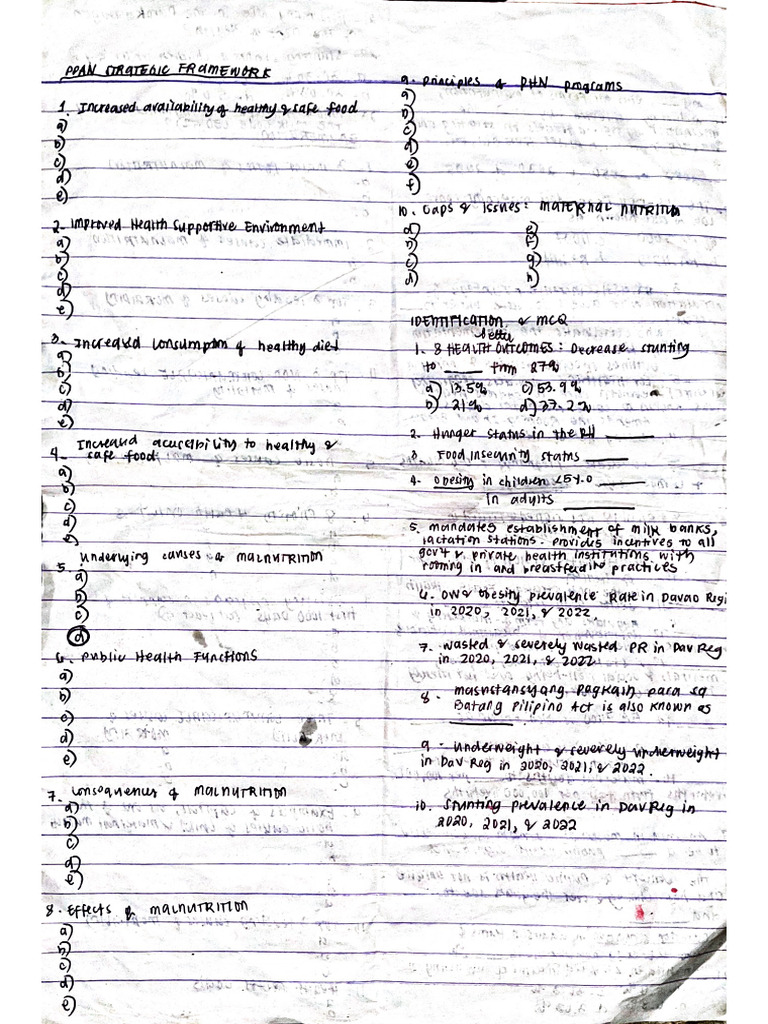 PPAN STRATEGIC FRAMEWORK
1. Increased availability of healthy & safe food
a)
b)
c)
d)
e)
2. Improved Health Supportive Environment
a)
b)
c)
d)
e)
3. Increased consumption of healthy diet
a)
b)
c)
d)
e)
4. Increased accessibility to healthy &
safe food
a)
b)
c)
d)
5. Underlying causes of MALNUTRITION
a)
b)
c)
d)
6. Public Health Functions
a)
b)
c)
d)
e)
7. Consequences of MALNUTRITION
a)
b)
c)
d)
e)
8. Effects of MALNUTRITION
a)
b)
c)
d)
e)
9. Principles of PHN programs
a)
b)
c)
d)
e)
f)
10. Gaps & Issues: MATERNAL NUTRITION
a) e)
b) f)
c) g)
d) h)
IDENTIFICATION & MCQ
better
1. 8 HEALTH OUTCOMES: Decrease stunting
to ____ from 27%
a) 13.5% c) 53.9%
b) 21% d) 37.2%
2. Hunger status in the PH ____
3. Food insecurity status ____
4. Obesity in children <5y.o ____
in adults ____
5. mandates establishment of milk banks,
lactation stations. provides incentives to all
gov't & private health institutions with
rooming in and breastfeeding practices
6. OW & Obesity prevalence Rate in Davao Regi
in 2020, 2021, & 2022
7. wasted & severely wasted PR in Dav Reg
in 2020, 2021, & 2022
8. masustansyang Pagkain para sa
Batang Pilipino Act is also known as
____
9. underweight & severely underweight
in Dav Reg in 2020, 2021, & 2022.
10. Stunting prevalence in Dav Reg in
2020, 2021, & 2022